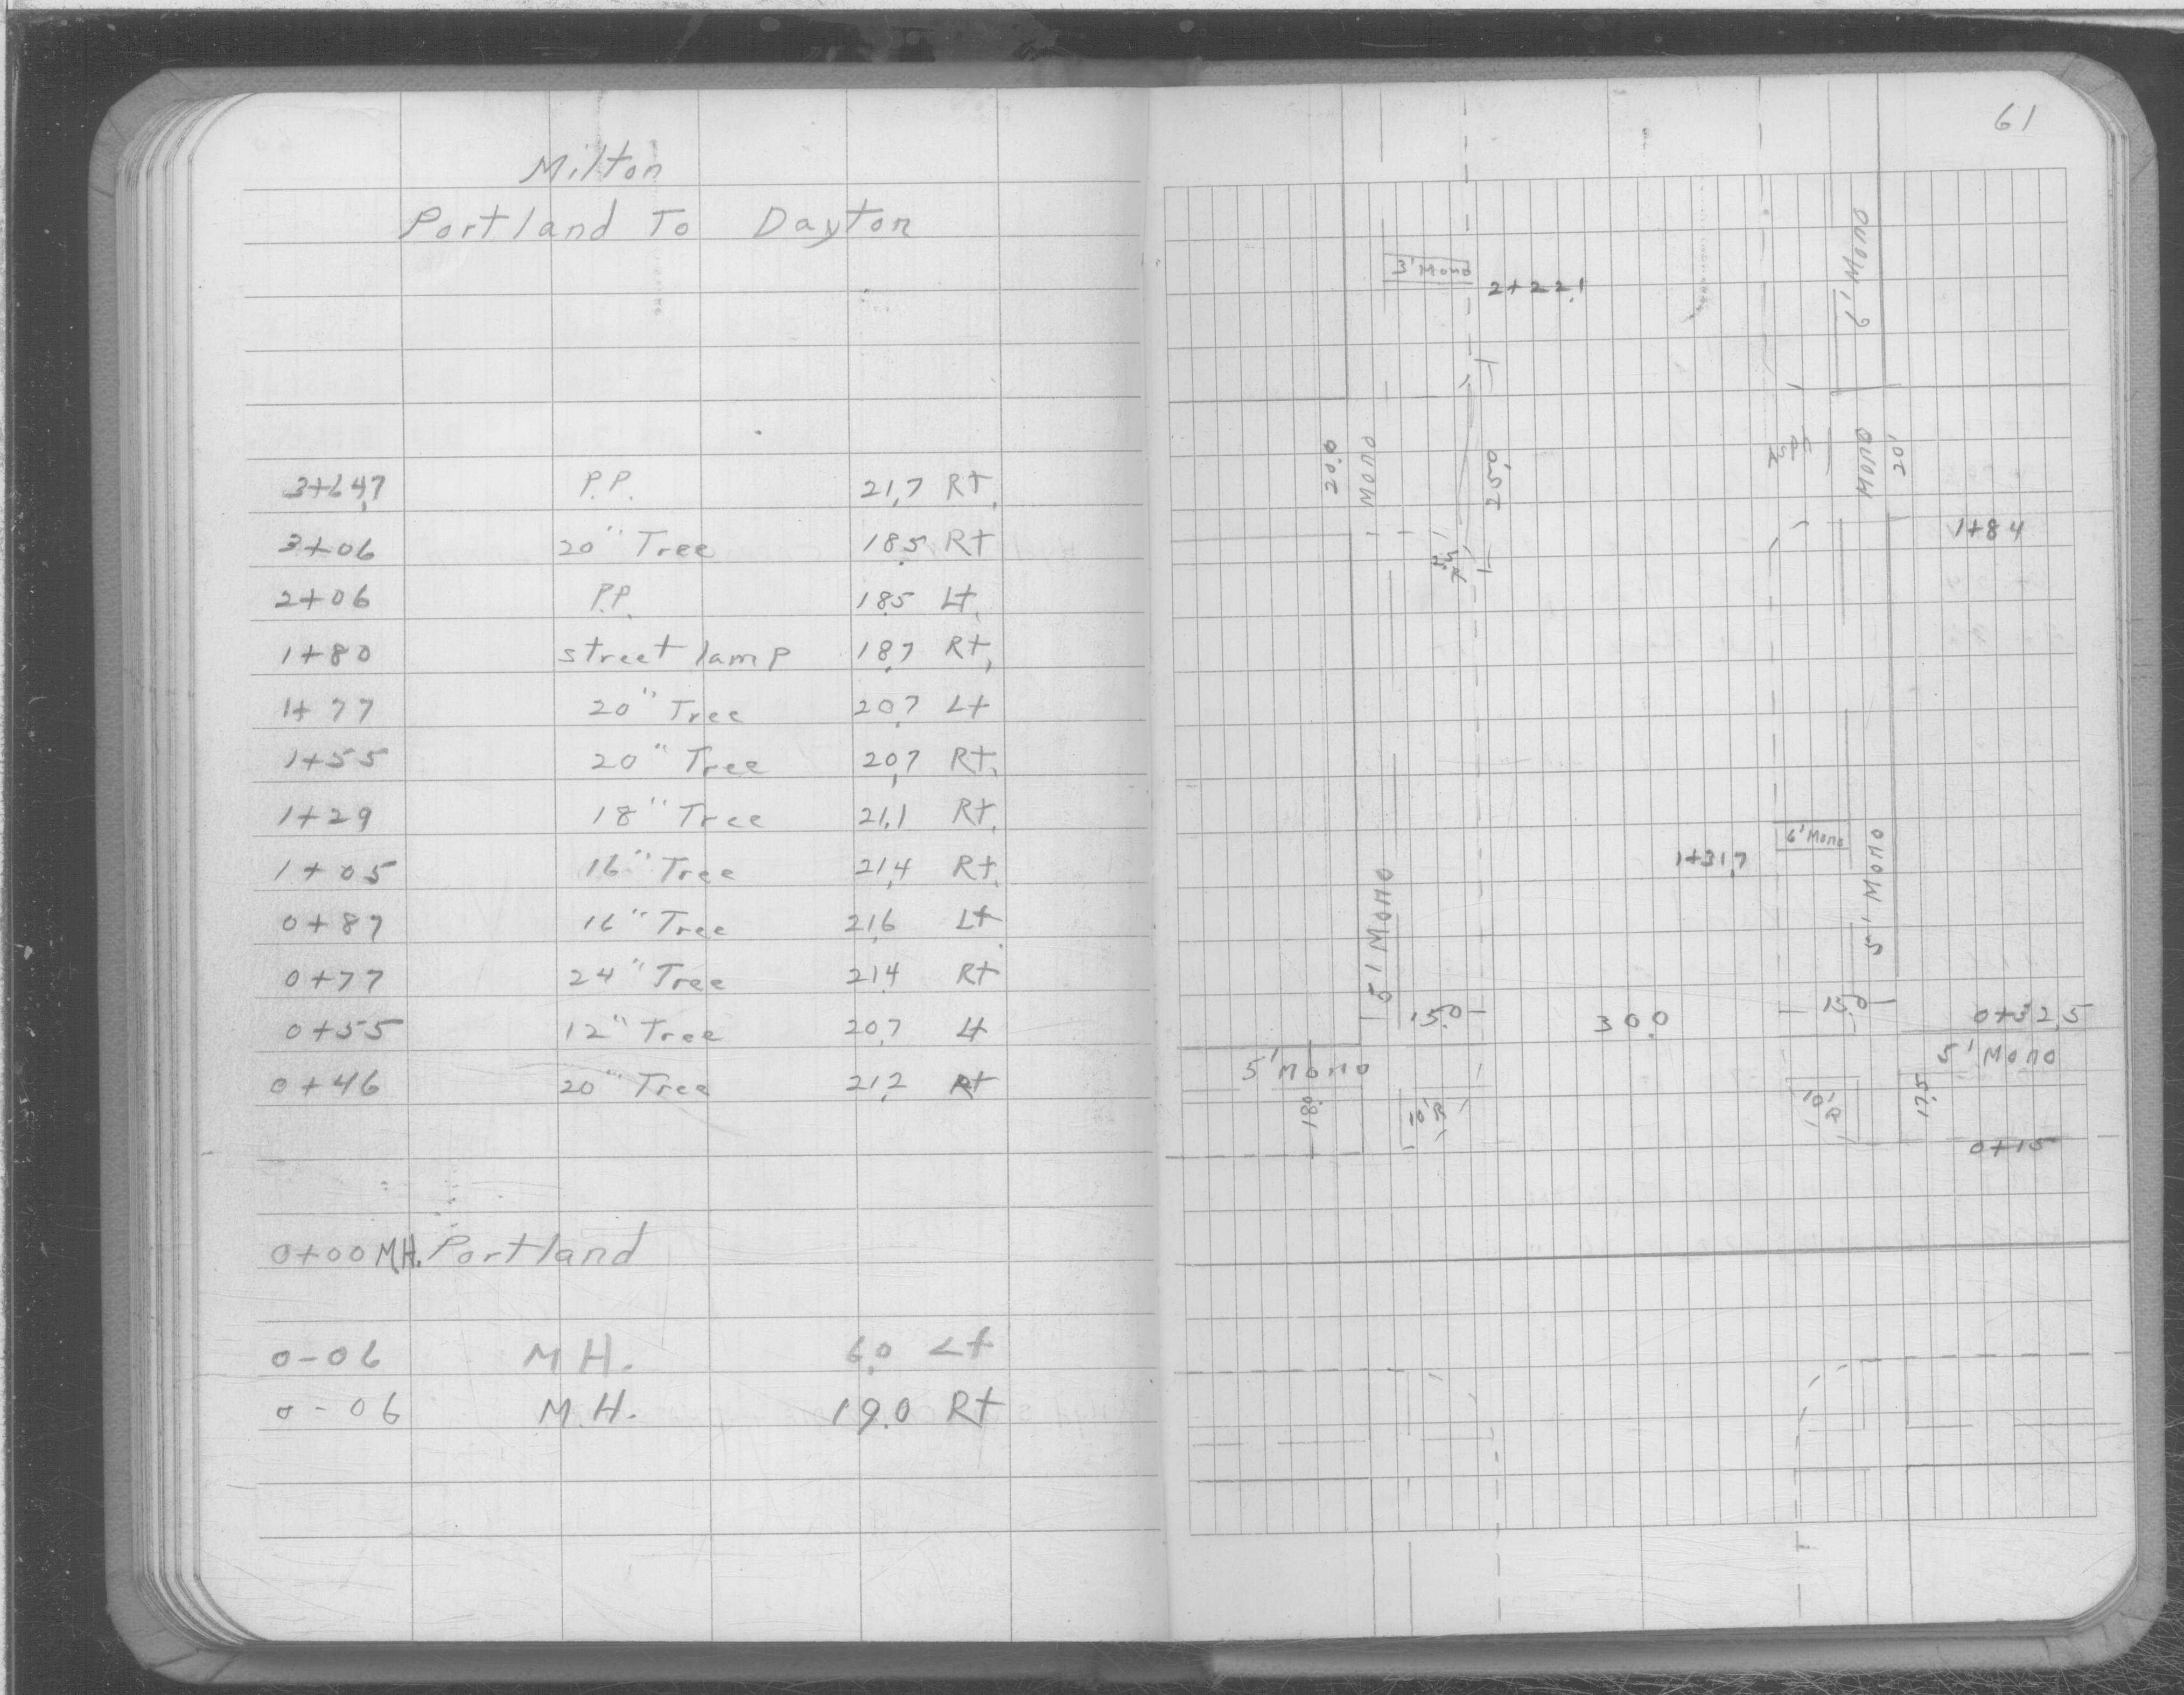 Milton
Portland To Dayton
3+64.7 P.P. 21.7 Rt.
3+06 20" Tree 18.5 Rt
2+06 P.P. 18.5 Lt.
1+80 street lamp 18.7 Rt.
1+77 20" Tree 20.7 Lt
1+55 20" Tree 20.7 Rt.
1+29 18" Tree 21.1 Rt.
1+05 16" Tree 21.4 Rt.
0+87 16" Tree 21.6 Lt.
0+77 24" Tree 21.4 Rt
0+55 12" Tree 20.7 Lt
0+46 20" Tree 21.2 Rt
0+00 M.H. Portland
0-06 M.H. 6.0 Lt
0-06 M.H. 19.0 Rt
61
6' Mono
3' Mono
2+22.1
20.0
Mono
25.0
Mono
20'
1+84
1+31.7
6' Mono
5' Mono
5' Mono
15.0
30.0
15.0
0+32.5
5' Mono
5' Mono
18.0
10'R
10'R
17.5
0+15